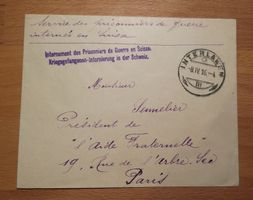 Service des prisonniers de guerre
internés en Suisse
Internement des Prisonniers de Guerre en Suisse.
Kriegsgefangenen-Internierung in der Schweiz.
INTERLAKEN
Monsieur
Sennelier
Président de
"l'Aide Fraternelle"
19, Rue de l'Arbre-Sec
Paris